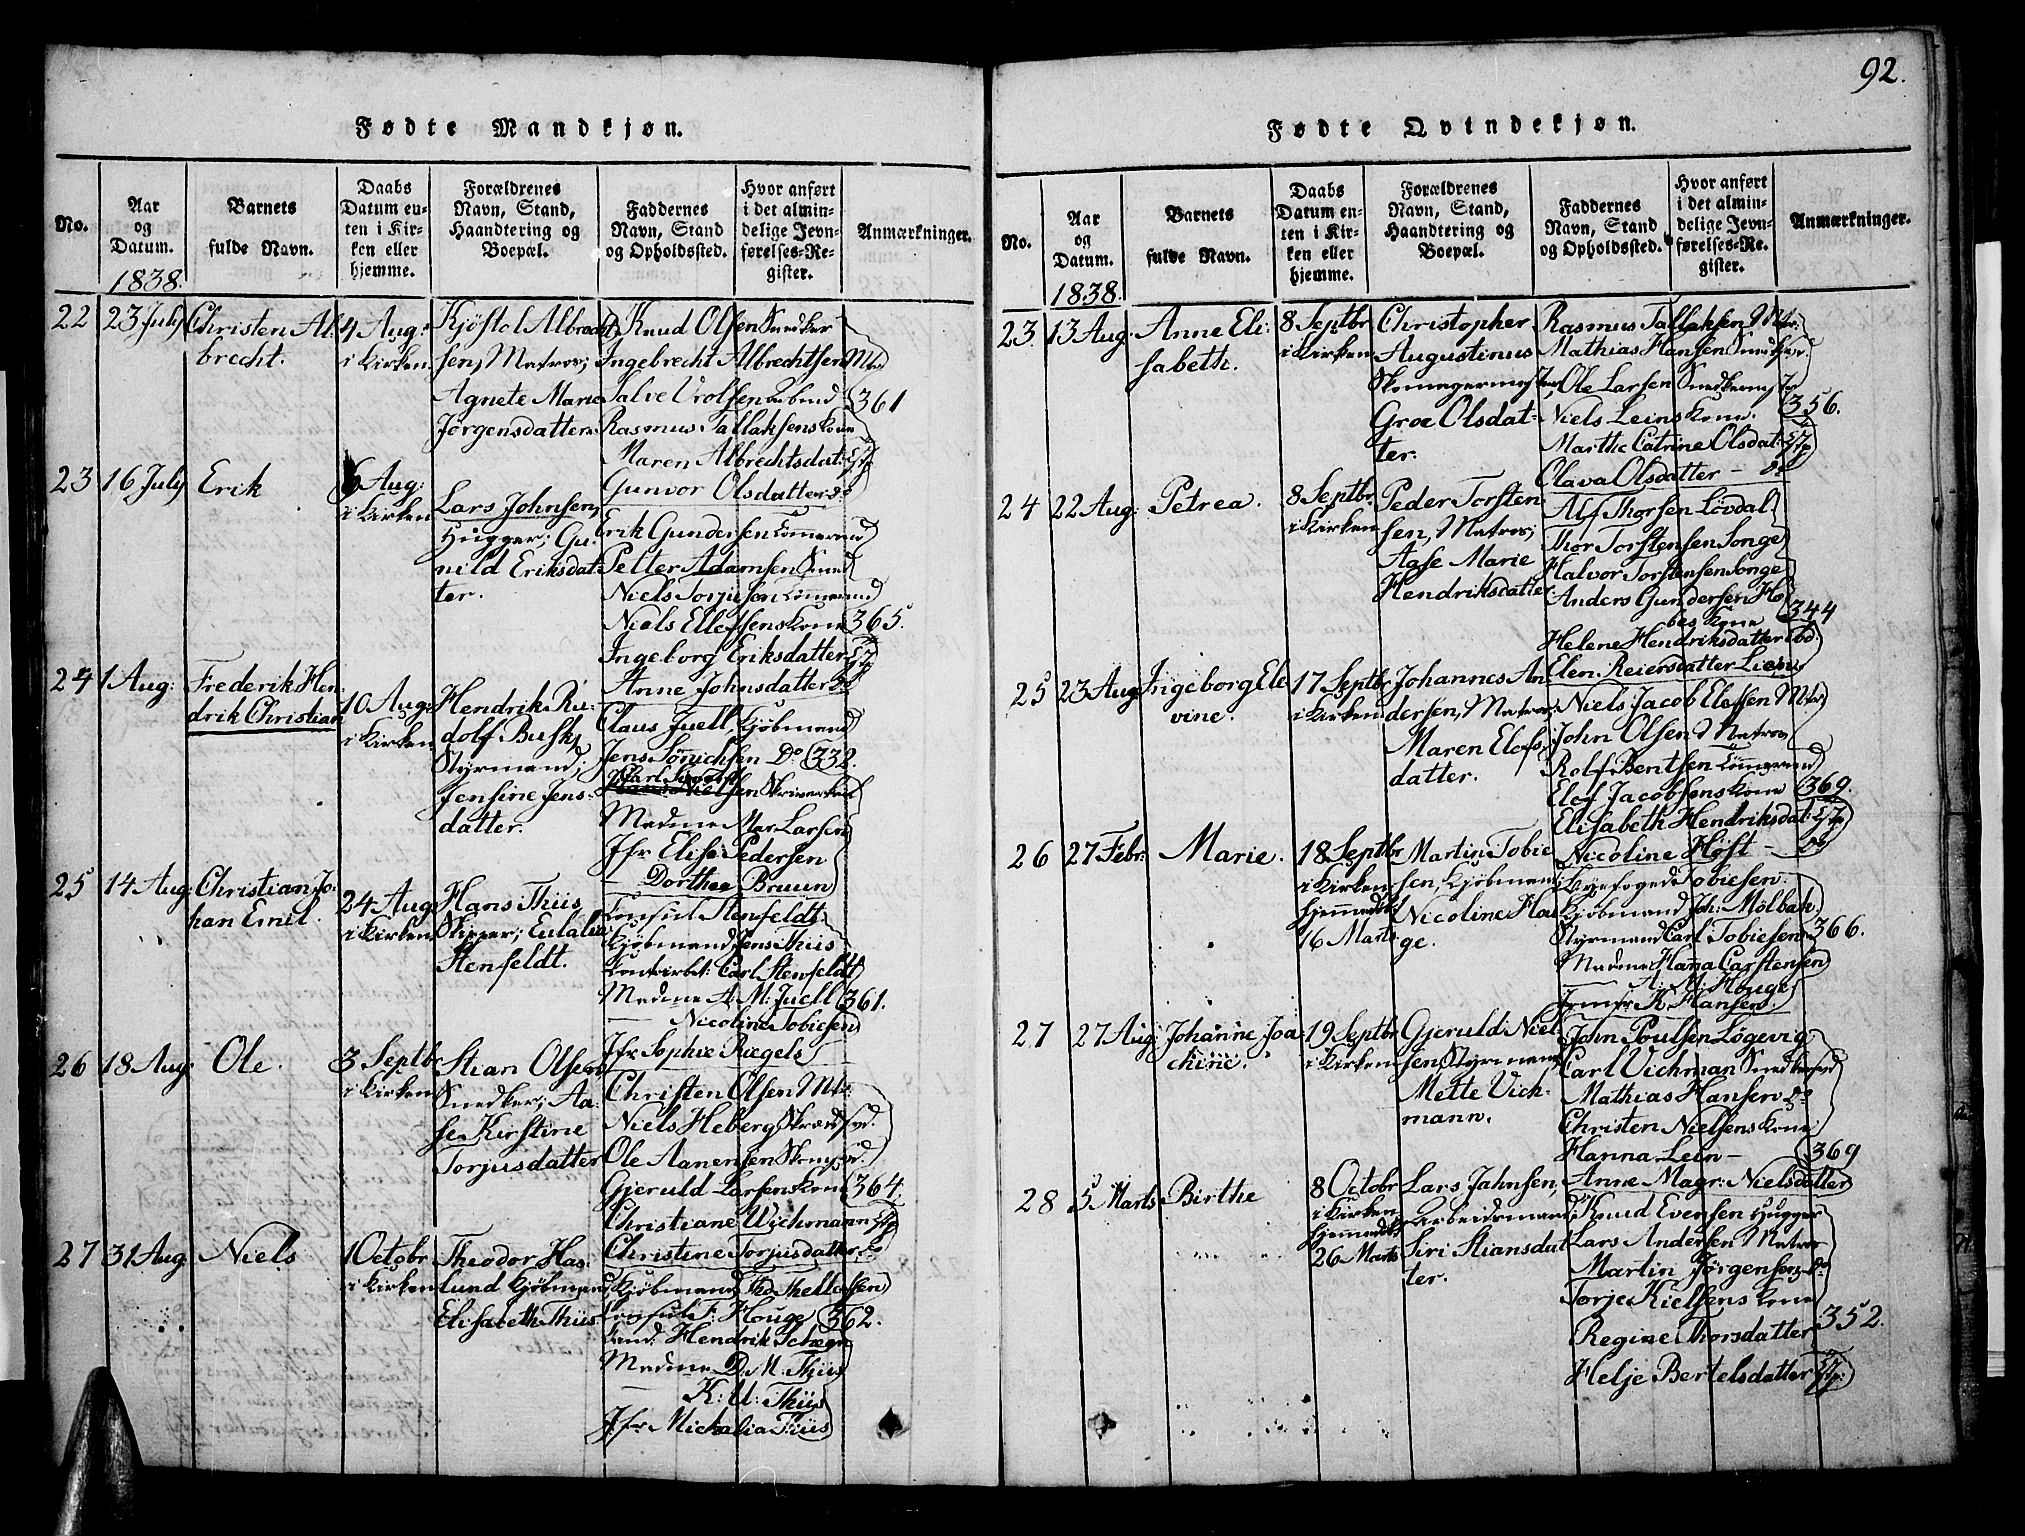 92.
Fødte Mandkjøn.
No.
Aar
og
Datum.
1838.
Barnets
fulde Navn.
Daabs
Datum en-
ten i Kir-
ken eller
hjemme.
Forældrenes
Navn, Stand,
Haandtering og
Boepæl.
Faddernes
Navn, Stand
og Opholdssted.
Hvor anført
i det almin-
delige Jevn-
førelses-Re-
gister.
Anmærkninger.
22
23 July
Christen Al-
brecht.
4 Aug:
i Kirken
Kjøstol Albrecht-
sen, Matros;
Agnete Marie
Jørgensdatter
Knud Olsen Snedker
Ingebrecht Albrechtsen Mtr
Salve Vrolsen
Rasmus Tallaksens Kone
Maren Albrechtsdat:
Gunvor Olsdatter do
361
23
16 July
Erik
6 Aug:
i Kirken
Lars Johnsen,
Hugger; Gu-
nild Eriksdat-
ter.
Erik Gundersen Tømmermd
Petter Adamsen Smed
Niels Torjusen Tømmermd
Niels Ellefsens Kone
Ingeborg Eriksdatter
Anne Johnsdatter do
365.
24
1 Aug:
Frederik Hen-
drik Christian
10 Aug:
i Kirken
Hendrik Ru-
dolf Busk,
Styrmand;
Jensine Jens-
datter.
Claus Juell, Kjøbmand
Jens Sønichsen Do
Madme Mar Larsen
Jfr Elise Pedersen
— Dorthea Bruun
332.
25
14 Aug:
Christian Jo-
han Emil.
24 Aug
i Kirken
Hans Thiis
Skipper; Eulalia
Stenfeldt.
Consul Stenfeldt
Kjøbmand Jens Thiis
Carl Stenfeldt
Madme A. M: Juell
— Nicoline Tobiesen
Jfr Sophie Riegels
361.
26
18 Aug:
Ole.
3 Septbr
i Kirken
Stian Olsen
Snedker; Aa-
se Kirstine
Torjusdatter
Christen Olsen Mtr:
Niels Heberg Skrædsvd.
Ole Aanensen
Gjeruld Larsens Kone
Christiane Wichmann
Christine Torjusdatter do
364.
27
31 Aug:
Niels
1 Octobr
i Kirken
Theodor Has-
lund Kjøbmand
Elisabeth Thiis
Kjøbmand
Consul F: Houge
Cand. Hendrik
Madme D. M. Thiis
— K: U: Thiis
Jfr Michalia Thiis
362.
Fødte Qvindekjøn.
No.
Aar
og
Datum.
1838.
Barnets
fulde Navn.
Daabs
Datum en-
ten i Kir-
ken eller
hjemme.
Forældrenes
Navn, Stand,
Haandtering og
Boepæl.
Faddernes
Navn, Stand
og Opholdssted.
Hvor anført
i det almin-
delige Jevn-
førelses-Re-
gister.
Anmærkninger.
23
13 Aug:
Anne Eli-
sabeth.
8 Septbr
i Kirken
Christopher
Augustinus
Skomagermester,
Groe Olsdat-
ter.
Rasmus Tallaksen Mtr.
Mathias Hansen Snedksvd.
Ole Larsen Snedkermester
Niels Leins Kone.
Marthe Catrine Olsdat:
Olava Olsdatter — do
356.
24
22 Aug:
Petrea.
8 Septbr
i Kirken
Peder Torsten-
sen, Matros;
Aase Marie
Hendriksdatter
Alf Thorsen Løvdal
Thor Torstensen Songe
Halvor Torstensen Songe
Anders Gundersen Ho-
bes Kone
Helene Hendriksdatter ibd:
Elen Reiersdatter Liene
344
25
23 Aug:
Ingeborg Ele-
vine.
17 Septbr
i Kirken
Johannes An-
dersen, Matros;
Maren Elefs-
datter.
Niels Jacob Elefsen Mtr
John Olsen Matros
Rolf Bentsen Tømmermd
Elef Jacobsens Kone
Elisabeth Hendriksdat:
Nicoline Høst — do
369.
26
27 Febr:
Marie.
18 Septbr
i Kirken
hjemmedbt
16 Marts
Martin Tobie-
sen, Kjøbmand
Nicoline Hou-
ge.
Byefoged Tobiesen
Kjøbmand Joh: Mølbak
Styrmand Carl Tobiesen
Madme Hanna Carstensen
— A: M: Houge
Jomfr K. Hansen
366.
27
27 Aug:
Johanne Joa-
chine.
19 Septbr
i Kirken
Gjeruld Niel-
sen, Styrmand
Mette Vich-
mann.
John Poulsen Løgevig
Carl Vichman Snedkersvd
Mathias Hansen do
Christen Nielsens Kone
Hanna Lein —
Anne Magr: Nielsdatter
369
28
5 Marts
Birthe
8 Octobr
i Kirken
hjemmedbt
26 Marts
Lars Jahnsen,
Arbeidsmand
Siri Stiansdat-
ter.
Knud Evensen Hugger
Lars Andersen Matros
Martin Jørgensen do
Torje Kielsens Kone
Regine Thorsdatter
Helje Bertelsdatter
352.